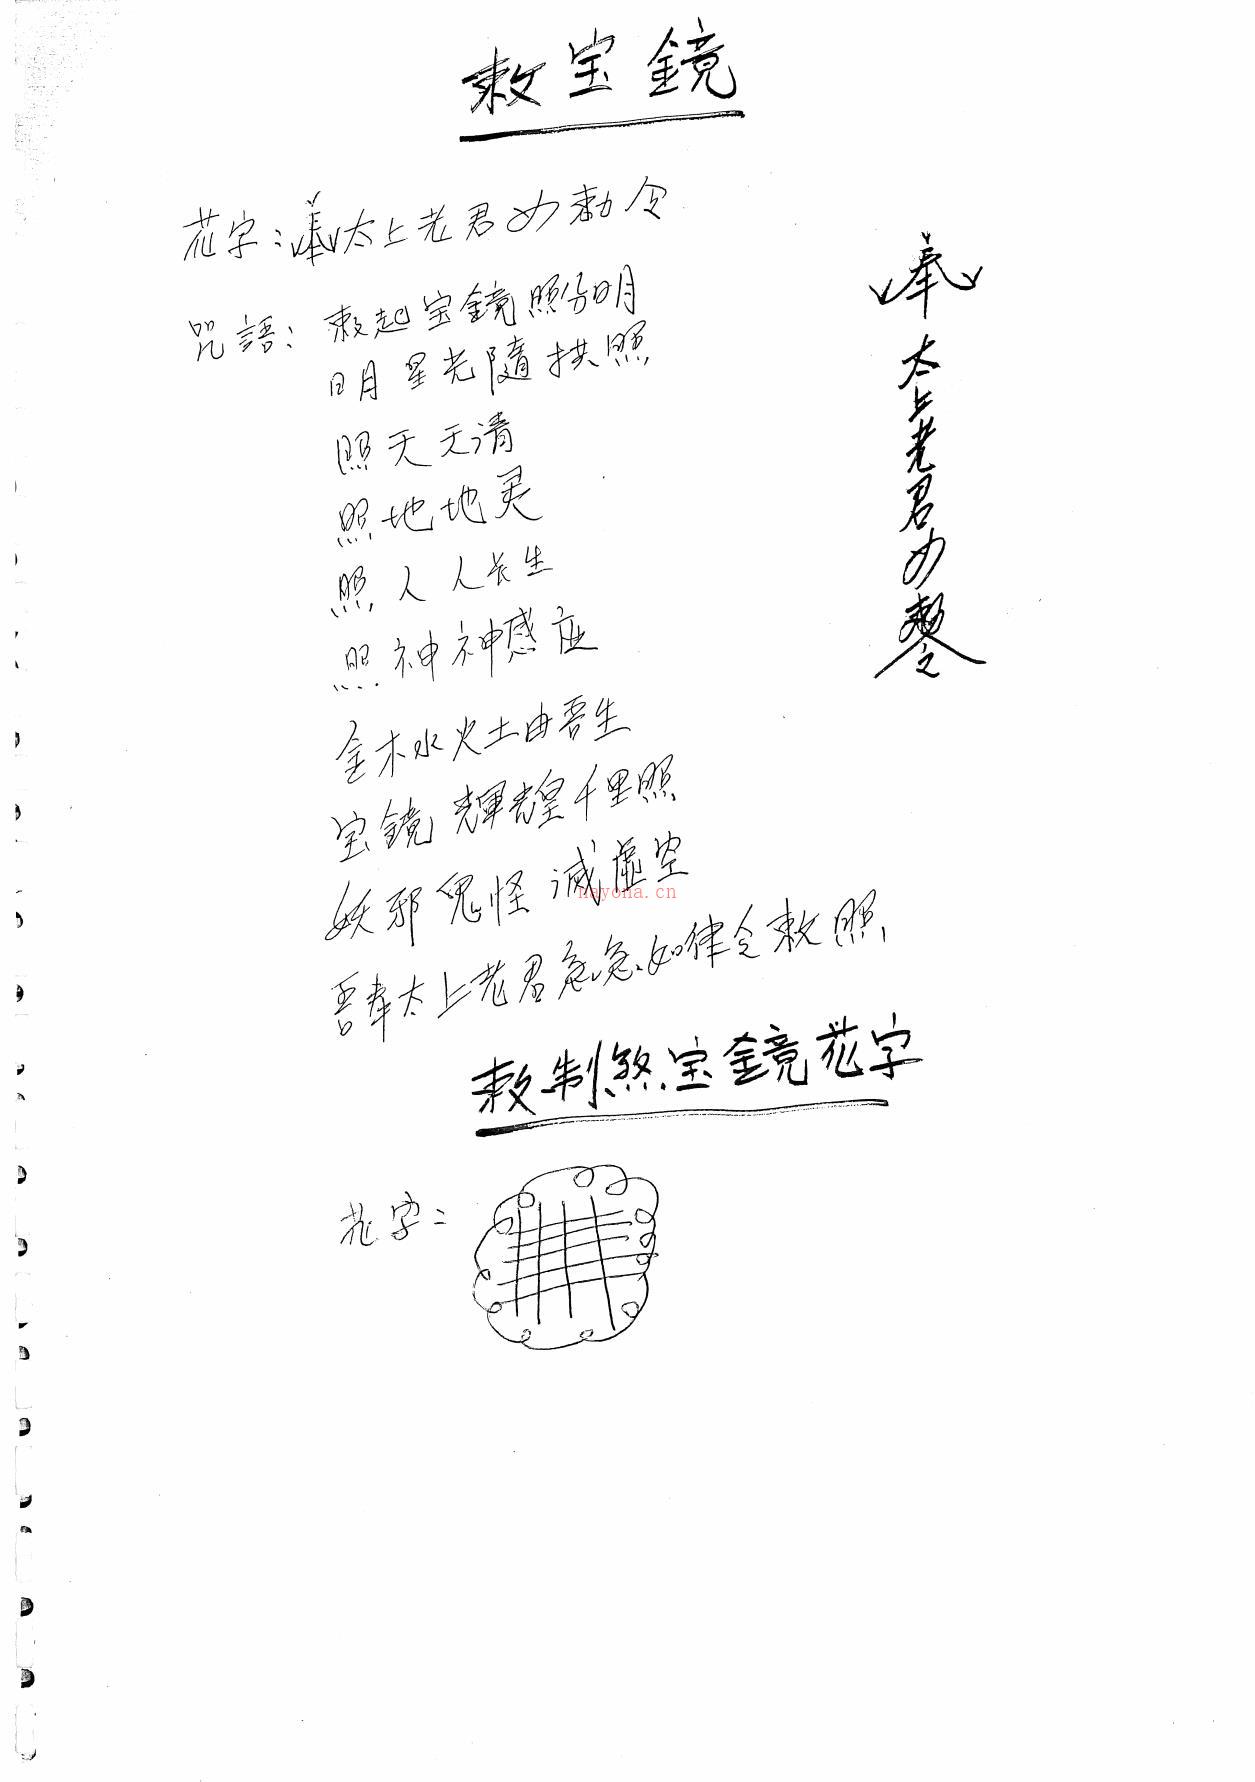 敕宝鏡
花字：奉太上老君敕令
咒語：敕起宝鏡照分明
日月星光隨拱照
照天天清
照地地灵
照人人长生
照神神感应
金木水火土由吾生
宝鏡輝煌千里照
妖邪鬼怪减虛空
nayona.cn
吾奉太上老君急急如律令敕照
奉太上老君敕令
敕制煞宝鏡花字
花字：